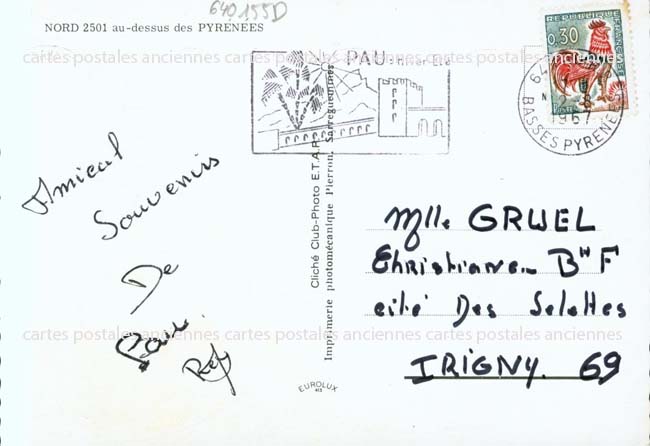 640155D
NORD 2501 au-dessus des PYRENEES
cartes postales anciennes cartes postales anciennes cartes postales anciennes
PAU
0,30
REPUBLIQUE
FRANÇAISE
1967
BASSES PYRENEES
Amical
Souvenirs
De
Pau.
Cliché Club-Photo E.T.A.P.
Imprimerie photomécanique Pierron, Sarreguemines
Mlle GRUEL
Christiane Bt F
cité Des Selettes
IRIGNY 69
cartes postales anciennes cartes postales anciennes cartes postales anciennes
EUROLUX